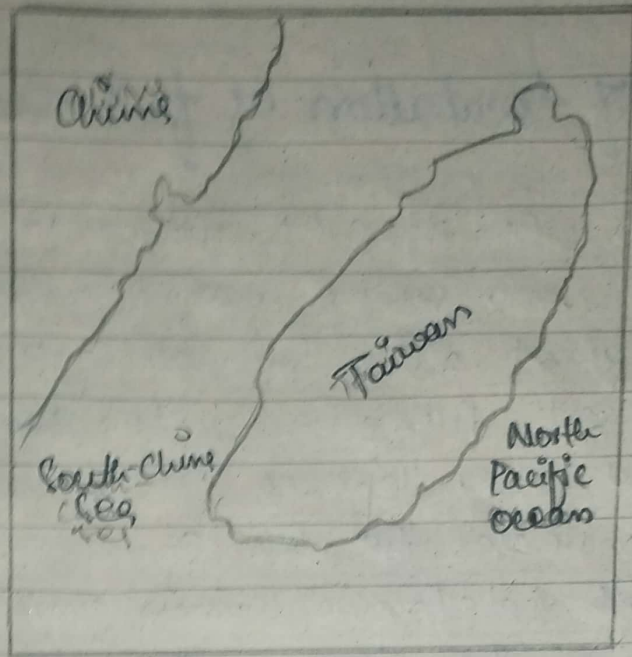 China
Taiwan
South China
Sea
North
Pacific
ocean